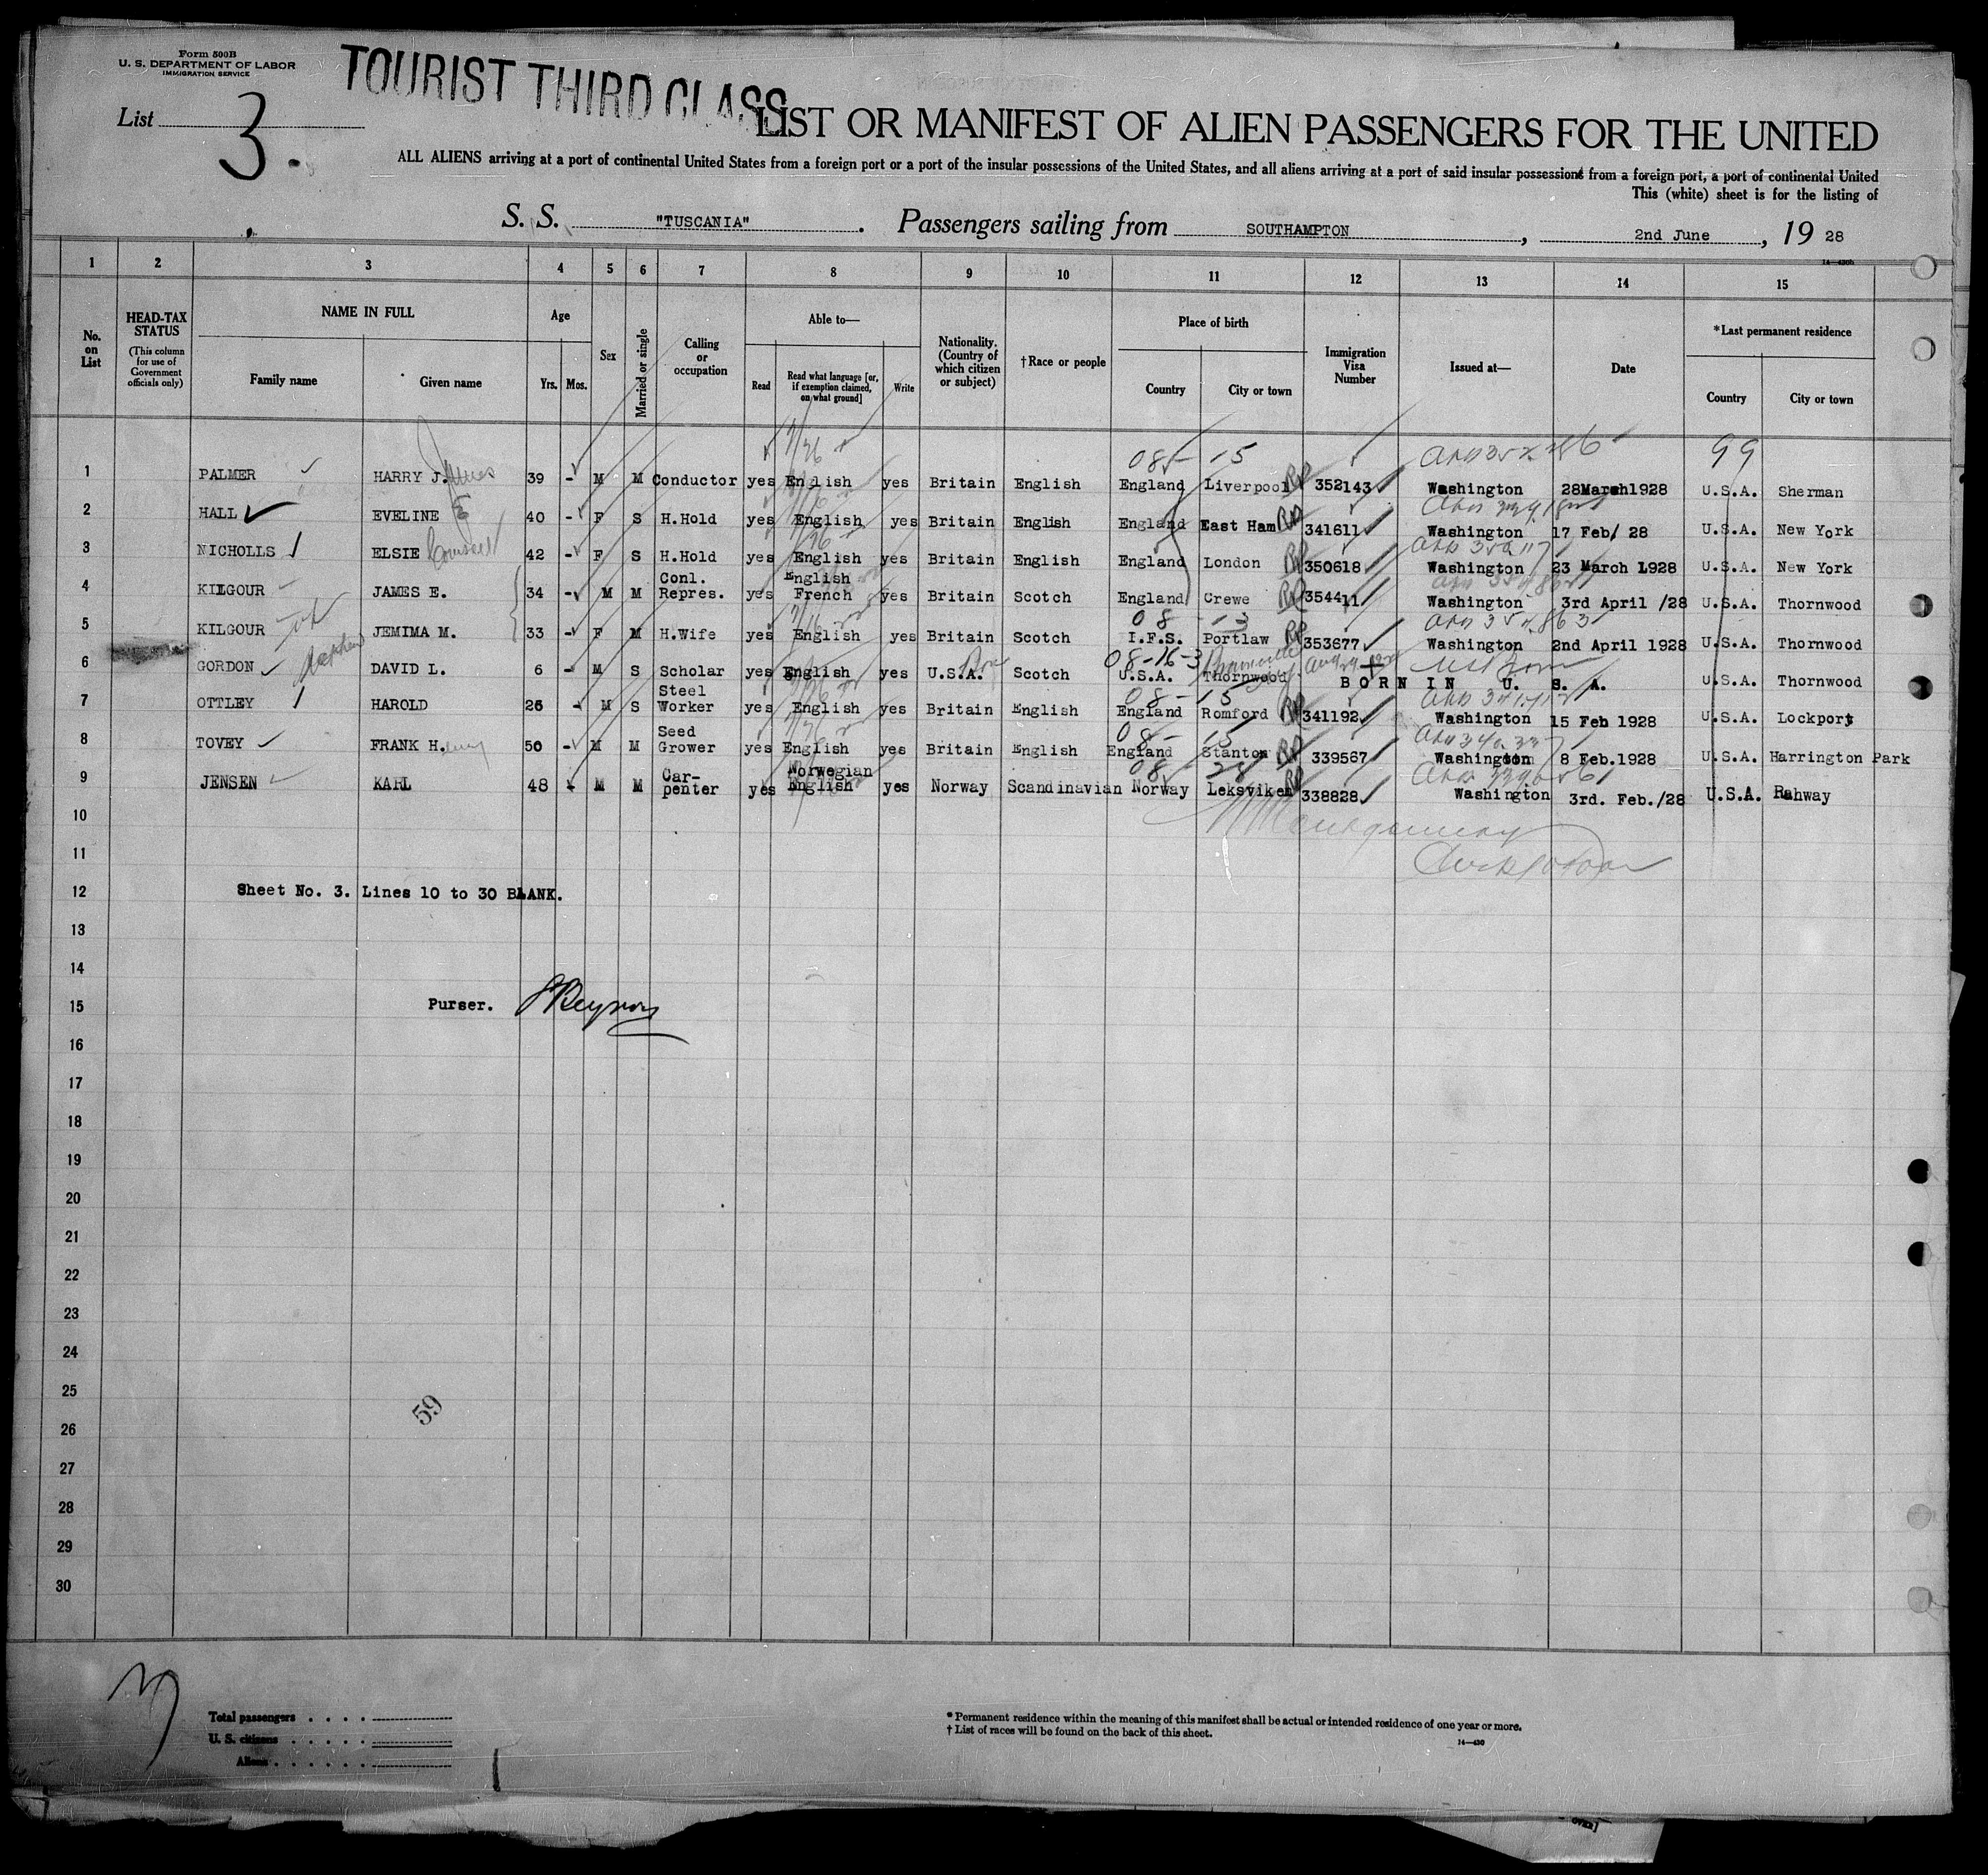 Form 500B
U. S. DEPARTMENT OF LABOR
IMMIGRATION SERVICE
TOURIST THIRD CLASS
List 3.
LIST OR MANIFEST OF ALIEN PASSENGERS FOR THE UNITED
ALL ALIENS arriving at a port of continental United States from a foreign port or a port of the insular possessions of the United States, and all aliens arriving at a port of said insular possessions from a foreign port, a port of continental United
This (white) sheet is for the listing of
S. S. "TUSCANIA". Passengers sailing from SOUTHAMPTON, 2nd June, 19 28
14—430b
1 2 3 4 5 6 7 8 9 10 11 12 13 14 15
No. on List
HEAD-TAX STATUS (This column for use of Government officials only)
NAME IN FULL
Family name Given name
Age
Yrs. Mos.
Sex
Married or single
Calling or occupation
Able to—
Read Read what language [or, if exemption claimed, on what ground] Write
Nationality. (Country of which citizen or subject)
†Race or people
Place of birth
Country City or town
Immigration Visa Number
Issued at—
Date
*Last permanent residence
Country City or town
08 - 15 99
1 PALMER HARRY J. James 39 - M M Conductor yes English yes Britain English England Liverpool 352143 Washington 28March1928 U.S.A. Sherman
2 HALL EVELINE E 40 - F S H.Hold yes English yes Britain English England East Ham 341611 Washington 17 Feb/ 28 U.S.A. New York
3 NICHOLLS ELSIE 42 - F S H.Hold yes English yes Britain English England London 350618 Washington 23 March 1928 U.S.A. New York
4 KILGOUR JAMES E. 34 - M M Conl. Repres. yes English French yes Britain Scotch England Crewe 354411 Washington 3rd April /28 U.S.A. Thornwood
08 - 13
5 KILGOUR JEMIMA M. 33 - F M H.Wife yes English yes Britain Scotch I.F.S. Portlaw 353677 Washington 2nd April 1928 U.S.A. Thornwood
08-16-3
6 GORDON Nephew DAVID L. 6 - M S Scholar yes English yes U.S.A. Scotch U.S.A. Thornwood BORN IN U. S. A. U.S.A. Thornwood
08 - 15
7 OTTLEY HAROLD 26 - M S Steel Worker yes English yes Britain English England Romford 341192 Washington 15 Feb 1928 U.S.A. Lockport
08 - 15
8 TOVEY FRANK H.enry 50 - M M Seed Grower yes English yes Britain English England Stanton 339567 Washington 8 Feb.1928 U.S.A. Harrington Park
08 - 28
9 JENSEN KARL 48 - M M Car-penter yes Norwegian English yes Norway Scandinavian Norway Leksviken 338828 Washington 3rd. Feb./28 U.S.A. Rahway
10
11
12 Sheet No. 3. Lines 10 to 30 BLANK.
13
14
15 Purser.
16
17
18
19
20
21
22
23
24
25
59
26
27
28
29
30
Total passengers
U. S. citizens
Aliens
* Permanent residence within the meaning of this manifest shall be actual or intended residence of one year or more.
† List of races will be found on the back of this sheet.
14—430
OVER]